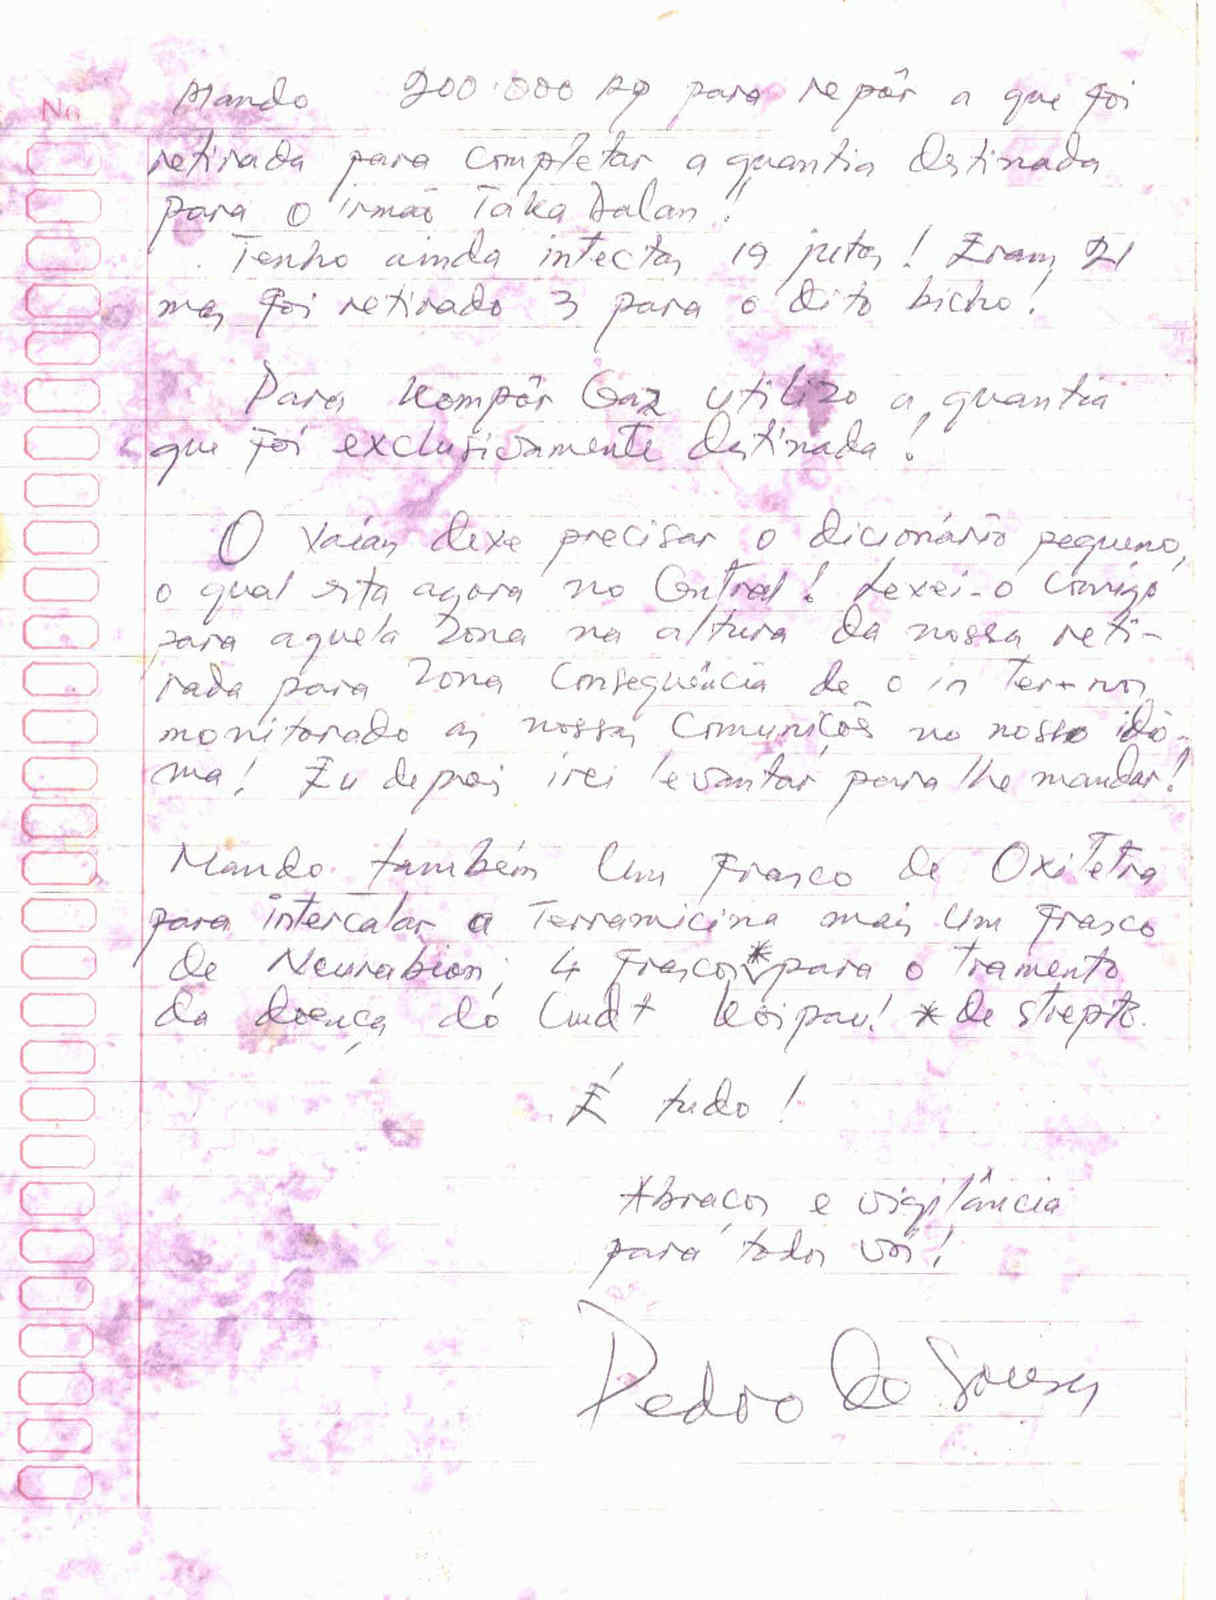 No
Mando 200.000 Rp para repôr a que foi
retirada para completar a quantia destinada
para o irmão Taka Dalan!
Tenho ainda intectos 19 jutos! Eram 21
mas foi retirado 3 para o dito bicho!
Para kompôr Gaz utilizo a quantia
que foi exclusivamente destinada!
O deve precisar o dicionário pequeno,
o qual esta agora no Central! Lexei-o comigo
para aquela zona na altura da nossa reti-
rada para zona consequência de o in ter-nos
monitorado as nossas comunições no nosso idio-
ma! Eu depois irei levantar para lhe mandar!
Mando também um frasco de Oxitetra
para intercalar a Terramicina mais um frasco
de Neurabion; 4 frascos * para o tramento
da doença do Cmdt! * de strepto.
É tudo!
Abraços e vigilância
para todos vós!
Pedro de Sousa